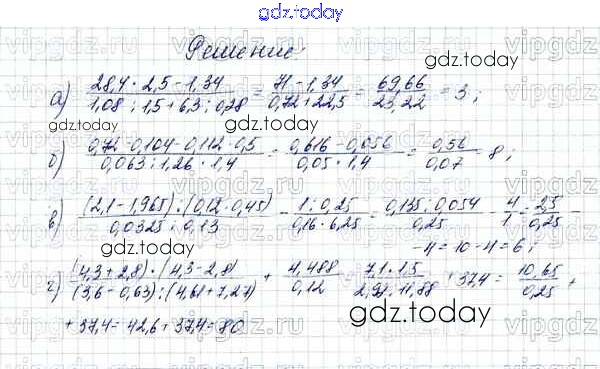 gdz.today
Решение:
gdz.today
а) (28,4 · 2,5 - 1,34)/(1,08 : 1,5 + 6,3 : 0,28) = (71 - 1,34)/(0,72 + 22,5) = 69,66/23,22 = 3;
gdz.today gdz.today
б) (0,72 - 0,104 - 0,112 · 0,5)/(0,063 : 1,26 · 1,4) = (0,616 - 0,056)/(0,05 · 1,4) = 0,56/0,07 8;
gdz.today
в) ((2,1 - 1,965) : (0,12 · 0,45))/(0,0325 : 0,13) - (1 : 0,25)/(0,16 · 6,25) = (0,135 : 0,054)/0,25 - 4/1 = 2,5/0,25 -
- 4 = 10 - 4 = 6;
gdz.today
г) ((4,3 + 2,8) · (4,3 - 2,8))/((3,6 - 0,63) : (4,61 + 7,27)) + 4,488/0,12 = (7,1 · 1,5)/(2,97 : 11,88) + 37,4 = 10,65/0,25 +
+ 37,4 = 42,6 + 37,4 = 80
gdz.today
gdz.today